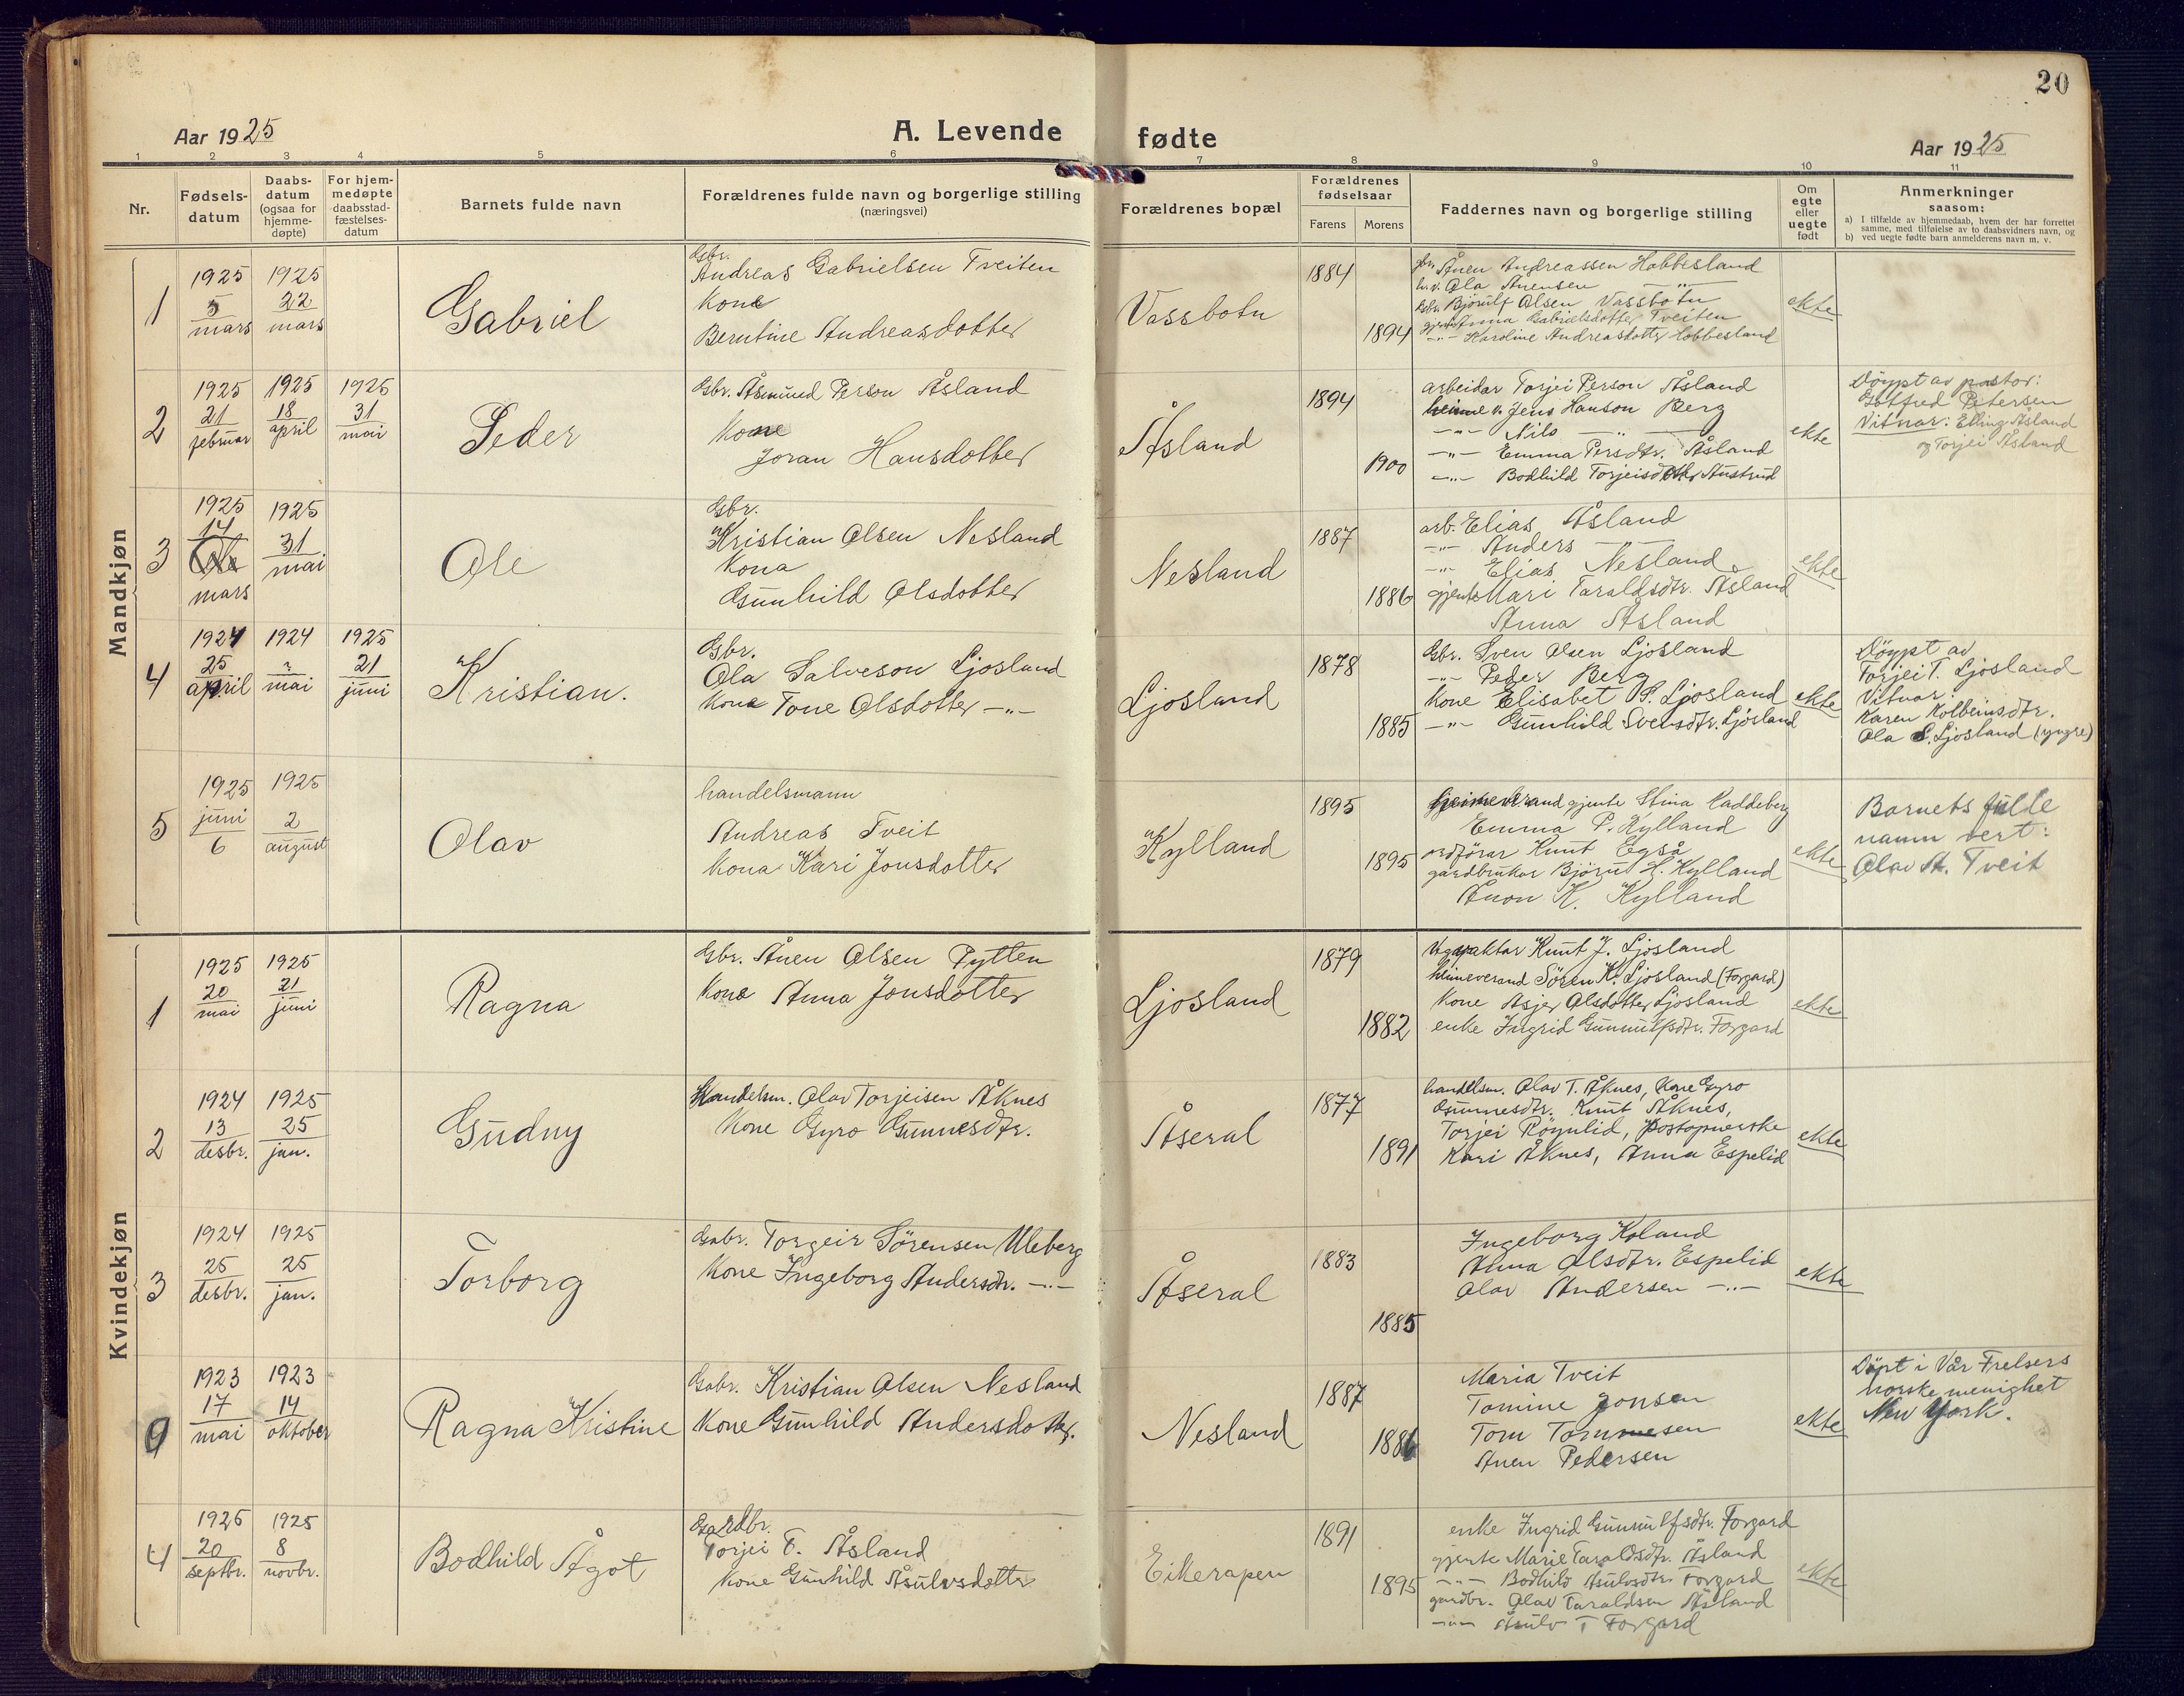 20
Aar 1925
A. Levende fødte
Aar 1925
1 2 3 4 5 6 7 8 9 10 11
Nr.
Fødsels-
datum
Daabs-
datum
(ogsaa for
hjemme-
døpte)
For hjem-
medøpte
daabsstad-
fæstelses-
datum
Barnets fulde navn
Forældrenes fulde navn og borgerlige stilling
(næringsvei)
Forældrenes bopæl
Forældrenes
fødselsaar
Farens
Morens
Faddernes navn og borgerlige stilling
Om
egte
eller
uegte
født
Anmerkninger
saasom:
a) I tilfælde av hjemmedaab, hvem der har forrettet
samme, med tilføielse av to daabsvidners navn, og
b) ved uegte fødte barn anmelderens navn m. v.
Mandkjøn
1
1925
5
mars
1925
22
mars
Gabriel
Gbr.
Andreas Gabrielsen Tveiten
Kone
Berntine Andreasdotter
Vassbotn
1884
1894
gbr. Ånen Andreassen Hobbesland
h.v. Ola Ånensen —"—
Gbr. Bjørulf Olsen Vassbotn
gjente Anna Gabrielsdotter Tveiten
—"— Karoline Andreasdotter Hobbesland
ekte
2
1925
21
februar
1925
18
april
1925
31
mai
Peder
Gbr. Åsmund Person Åsland
Kone
Joran Hansdotter
Åsland
1894
1900
arbeidar Torjei Person Åsland
heime v. Jens Hanson Berg
—"— Nils —"—
—"— Emma Persdtr. Åsland
—"— Bodhild Torjeisdotter Austrud
ekte
Döypt av pastor:
Gotfred Petersen
Vitnar: Elling Åsland
og Torjei Åsland
3
1925
14
mars
1925
31
mai
Ole
Gbr.
Kristian Olsen Nesland
Kona
Gunhild Olsdotter
Nesland
1887
1886
arb. Elias Åsland
—"— Anders —
—"— Elias Nesland
gjente Mari Taraldsdtr. Åsland
Anna Åsland
ekte
4
1924
25
april
1924
?
mai
1925
21
juni
Kristian.
Gbr.
Ola Salveson Ljosland
Kona Tone Olsdotter —"—
Ljosland
1878
1885
Gbr. Sven Olsen Ljosland
—"— Peder Berg
Kone Elisabet S. Ljosland
—"— Gunhild Svensdtr. Ljosland
ekte
Döypt av
Torjei T. Ljosland
Vitnar:
Karen Kolbeinsdtr.
Ola S. Ljosland (yngre)
5
1925
juni
6
1925
2
august
Olav
handelsmann
Andreas Tveit
Kona Kari Jonsdotter
Kylland
1895
1895
heimeverand gjente Stina Raddeberg
Emma P. Kylland
ordförar Knut Egså
gardbrukar Bjørn L. Kylland
Ånon K. Kylland
ekte
Barnets fulle
namn vert:
Olav A. Tveit
Kvindekjøn
1
1925
20
mai
1925
21
juni
Ragna
Gbr. Ånen Olsen Pytten
Kone Anna Jonsdotter
Ljosland
1879
1882
Vegvaktar Knut J. Ljosland
heimeverand Søren K. Ljosland (Forgard)
Kone Asjer Olsdotter Ljosland
enke Ingrid Gunnulfsdtr. Forgard
ekte
2
1924
13
desbr.
1925
25
jan.
Gudny
Handelsm. Olav Torjeisen Åknes
Kone Gyro Gunnesdtr.
Åseral
1877
1891
handelsm. Olav T. Åknes, Kone Gyro
Gunnesdtr. Knut Åknes,
Torjei Röynlid, Postopnerske
Kari Åknes, Anna Espelid
ekte
3
1924
25
desbr.
1925
25
jan.
Torborg
Gabr. Torgeir Sørensen Uleberg
Kone Ingeborg Andersdtr. —"—
Åseral
1883
1885
Ingeborg Koland
Anna Olsdtr. Espelid
Olav Andersen —"—
ekte
9
1923
17
mai
1923
14
oktober
Ragna Kristine
Gabr. Kristian Olsen Nesland
Kone Gunhild Andersdotter.
Nesland
1887
1886
Maria Tveit
Tomine Jonsen
Tom Tommesen
Ånen Pedersen
ekte
Döpt i Vår Frelsers
norske menighet
New York.
4
1925
20
septbr.
1925
8
novbr.
Bodhild Ågot
Gardbr.
Torjei T. Åsland
Kone Gunhild Åsulvsdotter
Eikerapen
1891
1895
enke Ingrid Gunnulfsdtr. Forgard
gjente Marie Taraldsdtr. Åsland
—"— Bodhild Åsulvsdtr. Forgard
gardbr. Olav Taraldsen Åsland
—"— Åsulv T Forgard
ekte